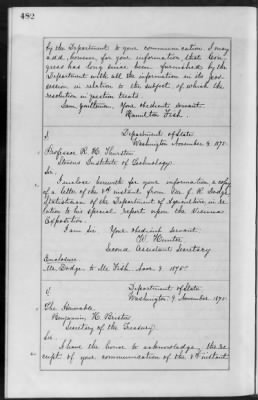 482
by the Department to your communication. I may
add, however, for your information, that Con-
gress has long since been furnished by the
Department with all the information in its pos-
session in relation to the subject of which the
resolution in question treats.
I am, gentlemen, Your obedient servant
Hamilton Fish.
Department of State
Washington November 9. 1875.
Professor R. H. Thurston
Stevens Institute of Technology.
Sir:
I enclose herewith for your information a copy
of a letter of the 8th instant from Mr. J. R. Dodge
Statistician of the Department of Agriculture in re-
lation to his special report upon the Vienna
Exposition.
I am Sir Your obedient servant
W. Hunter
Second Assistant Secretary
Enclosure.
Mr. Dodge to Mr. Fish Nov. 8 1875.
Department of State
Washington 9 November 1875.
The Honorable
Benjamin H. Bristow
Secretary of the Treasury.
Sir:
I have the honor to acknowledge the re-
ceipt of your communication of the 8th instant